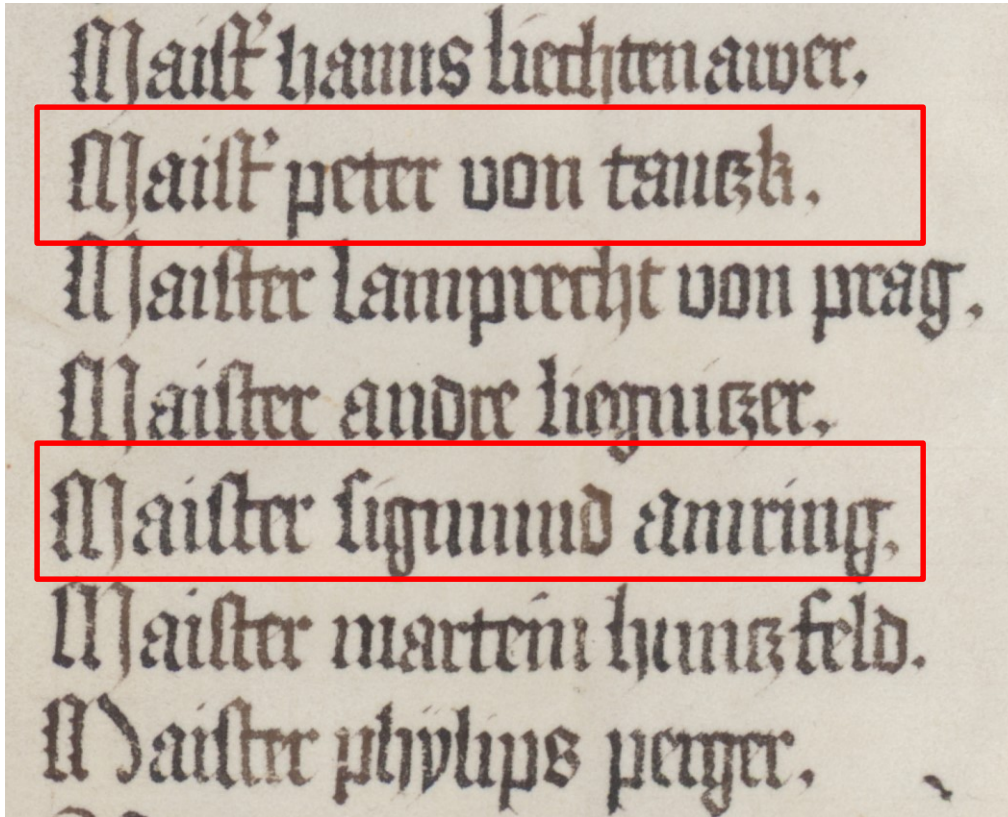 Maist' hanns liechtenawer.
Maist' peter von tanczk.
Maister lamprecht von prag.
Maister andre liegniczer.
Maister sigmund amring.
Maister martein hunczfeld.
Maister phÿlips perger.